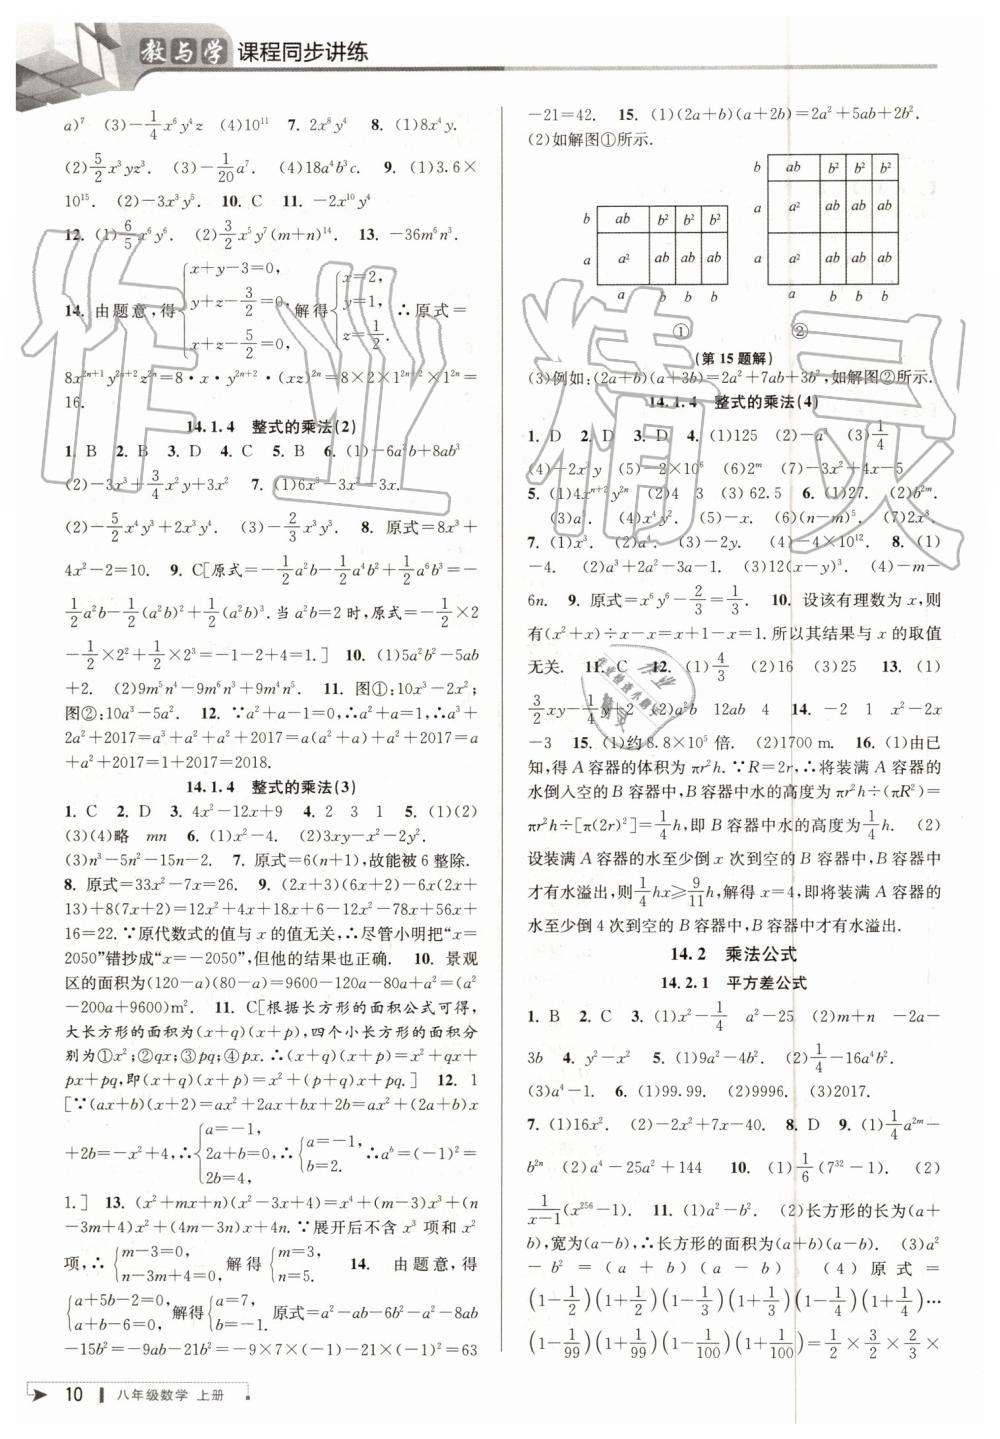 教与学 课程同步讲练
a)⁷ (3)-1/4x⁶y⁴z (4)10¹¹ 7. 2x⁸y⁴ 8. (1)8x⁴y.
(2)5/2x³yz³. (3)-1/20a⁷. (4)18a⁴b³c. 9. (1)3.6×
10¹⁵. (2)-3x³y⁵. 10. C 11. -2x¹⁰y⁴
12. (1)6/5x⁶y⁶. (2)3/2x⁵y⁷(m+n)¹⁴. 13. -36m⁶n³.
14. 由题意,得{x+y-3=0, y+z-3/2=0, x+z-5/2=0, 解得{x=2, y=1, z=1/2. ∴原式=
8x²ⁿ⁺¹y²ⁿ⁺²z²ⁿ=8·x·y²ⁿ⁺²·(xz)²ⁿ=8×2×1²ⁿ⁺²×1²ⁿ=
16.
14.1.4 整式的乘法(2)
1. B 2. B 3. D 4. C 5. B 6. (1)-6a²b+8ab³
(2)-3x³+3/4x²y+3x² 7. (1)6x³-3x²-3x.
(2)-5/2x⁴y³+2x³y⁴. (3)-2/3x³y³. 8. 原式=8x³+
4x²-2=10. 9. C[原式=-1/2a²b-1/2a⁴b²+1/2a⁶b³=-
1/2a²b-1/2(a²b)²+1/2(a²b)³.当a²b=2时,原式=-1/2×2
-1/2×2²+1/2×2³=-1-2+4=1.] 10. (1)5a²b²-5ab
+2. (2)9m⁵n⁴-9m⁶n³+9m⁴n⁵. 11. 图①:10x³-2x²;
图②:10a³-5a². 12. ∵a²+a-1=0,∴a²+a=1,∴a³+
2a²+2017=a³+a²+a²+2017=a(a²+a)+a²+2017=a
+a²+2017=1+2017=2018.
14.1.4 整式的乘法(3)
1. C 2. D 3. 4x²-12x+9 4. 2 3 1 5. (1)(2)
(3)(4)略 mn 6. (1)x²-4. (2)3xy-x²-2y².
(3)n³-5n²-15n-2. 7. 原式=6(n+1),故能被6整除.
8. 原式=33x²-7x=26. 9. (2x+3)(6x+2)-6x(2x+
13)+8(7x+2)=12x²+4x+18x+6-12x²-78x+56x+
16=22.∵原代数式的值与x的值无关,∴尽管小明把“x=
2050”错抄成“x=-2050”,但他的结果也正确. 10. 景观
区的面积为(120-a)(80-a)=9600-120a-80a+a²=(a²
-200a+9600)m². 11. C[根据长方形的面积公式可得,
大长方形的面积为(x+q)(x+p),四个小长方形的面积分
别为①x²;②qx;③pq;④px.∴(x+q)(x+p)=x²+qx+
px+pq,即(x+q)(x+p)=x²+(p+q)x+pq.] 12. 1
[∵(ax+b)(x+2)=ax²+2ax+bx+2b=ax²+(2a+b)x
+2b=-x²+4,∴{a=-1, 2a+b=0, 2b=4, ∴{a=-1, b=2. ∴aᵇ=(-1)²=
1.] 13. (x²+mx+n)(x²-3x+4)=x⁴+(m-3)x³+(n
-3m+4)x²+(4m-3n)x+4n.∵展开后不含x³项和x²
项,∴{m-3=0, n-3m+4=0, 解得{m=3, n=5. 14. 由题意,得
{a+5b-2=0, a+b-6=0, 解得{a=7, b=-1. 原式=a²-ab-6b²-a²-8ab
-15b²=-9ab-21b²=-9×7×(-1)-21×(-1)²=63
-21=42. 15. (1)(2a+b)(a+2b)=2a²+5ab+2b².
(2)如解图①所示.
b ab b² b²
a a² ab ab
a b b
①
b ab b² b²
a a² ab ab
a a² ab ab
②
(第15题解)
(3)例如:(2a+b)(a+3b)=2a²+7ab+3b²,如解图②所示.
14.1.4 整式的乘法(4)
1. D 2. D 3. D 4. (1)125 (2)-a³ (3)1/4
(4)-2x y (5)-2×10⁶ (6)2ᵐ (7)-3x²+4x-5
5. (1)4xⁿ⁺²y²ⁿ (2)4 3 (3) 62.5 6. (1)27. (2)b²ᵐ.
(3)a². (4)x⁴y². (5)-x. (6)(n-m)⁵. (7)2x⁸.
7. (1)x³. (2)a⁴. (3)-2y. (4)-4×10¹². 8. (1)
-4. (2)a³+2a²-3a-1. (3)12(x-y)³. (4)-m-
6n. 9. 原式=x⁶y⁶-2/3=1/3. 10. 设该有理数为x,则
有(x²+x)÷x-x=x+1-x=1.所以其结果与x的取值
无关. 11. C 12. (1)4/3 (2)16 (3)25 13. (1)
3/2xy-1/4y+2 (2)a²b 12ab 4 14. -2 1 x²-2x
-3 15. (1)约8.8×10⁵倍. (2)1700 m. 16. (1)由已
知,得A容器的体积为πr²h.∵R=2r,∴将装满A容器的
水倒入空的B容器中,B容器中水的高度为πr²h÷(πR²)=
πr²h÷[π(2r)²]=1/4h,即B容器中水的高度为1/4h. (2)
设装满A容器的水至少倒x次到空的B容器中,B容器中
才有水溢出,则1/4hx≥9/11h,解得x=4,即将装满A容器的
水至少倒4次到空的B容器中,B容器中才有水溢出.
14.2 乘法公式
14.2.1 平方差公式
1. B 2. C 3. (1)x²-1/4 a²-25 (2)m+n -2a-
3b 4. y²-x² 5. (1)9a²-4b². (2)1/4-16a⁴b².
(3)a⁴-1. 6. (1)99.99. (2)9996. (3)2017.
7. (1)16x². (2)-2x²+7x-40. 8. D 9. (1)1/4a²ᵐ-
b²ⁿ (2)a⁴-25a²+144 10. (1)1/6(7³²-1). (2)
1/(x-1)(x²⁵⁶-1). 11. (1)a²-b². (2)长方形的长为(a+
b),宽为(a-b),∴长方形的面积为(a+b)(a-b). (3)a²
-b²=(a+b)(a-b) (4)原式=
(1-1/2)(1+1/2)(1-1/3)(1+1/3)(1-1/4)(1+1/4)…
(1-1/99)(1+1/99)(1-1/100)(1+1/100)=1/2×3/2×2/3×
10 八年级数学 上册
作业精灵